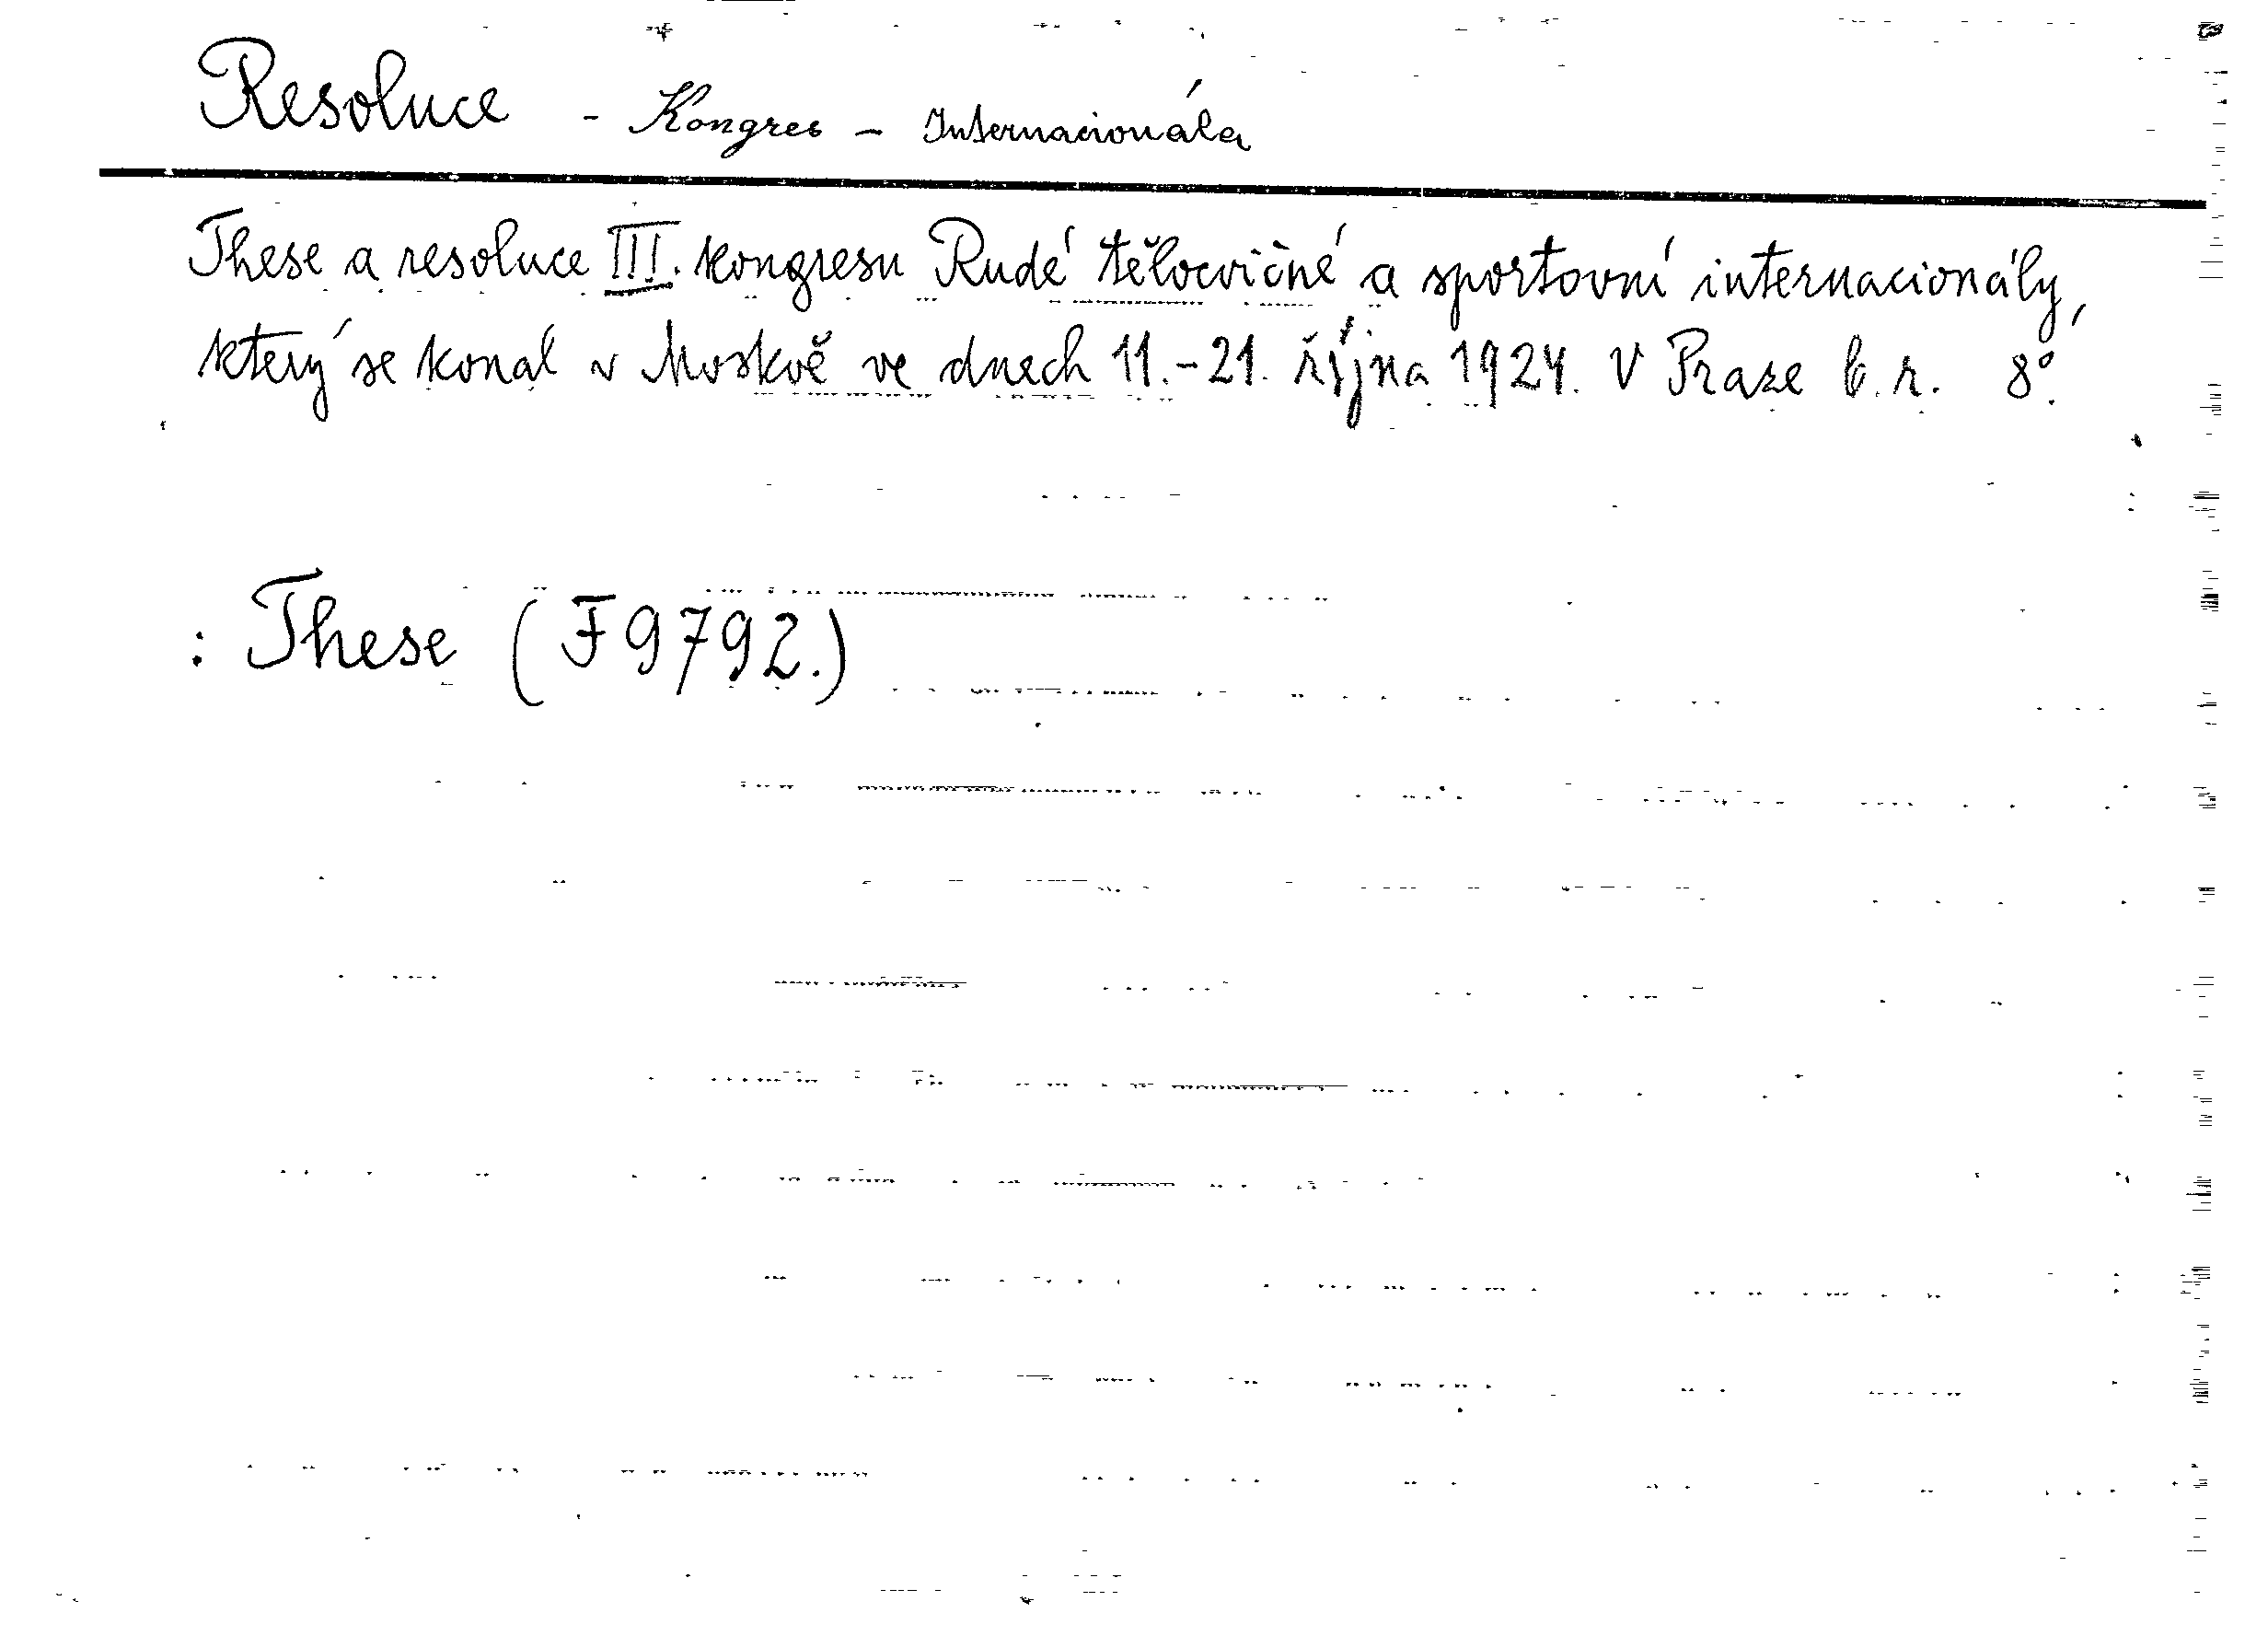 Resoluce - Kongres - Internacionála
These a resoluce III. kongresu Rudé tělocvičné a sportovní internacionály,
který se konal v Moskvě ve dnech 11.-21. října 1924. V Praze b. r. 8°.
: These (F 9792.)